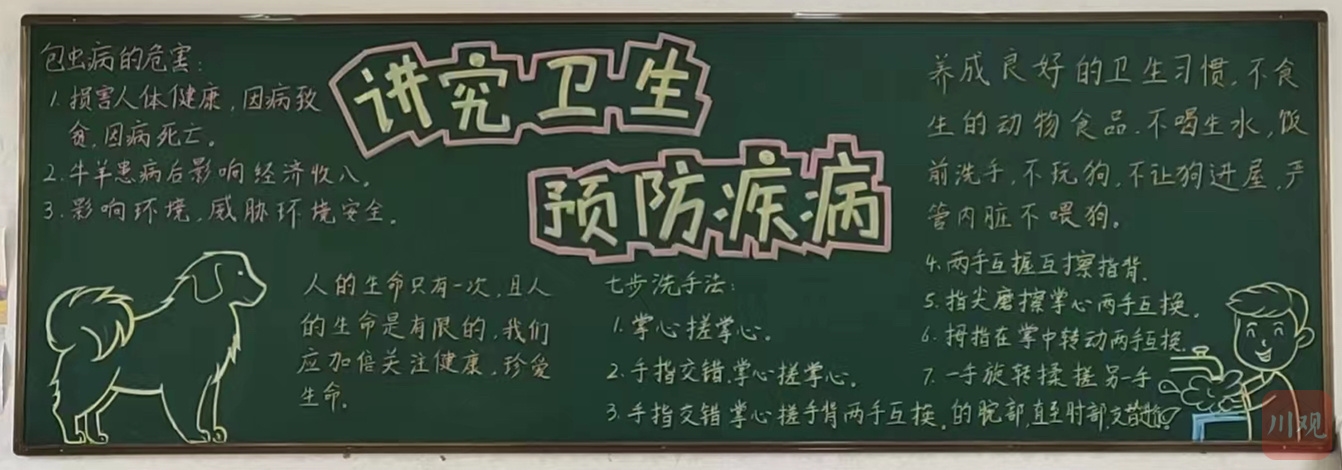 讲究卫生
预防疾病
包虫病的危害：
1.损害人体健康，因病致
贫，因病死亡。
2.牛羊患病后影响经济收入。
3.影响环境，威胁环境安全。
人的生命只有一次，且人
的生命是有限的，我们
应加倍关注健康，珍爱
生命。
七步洗手法：
1.掌心搓掌心。
2.手指交错，掌心搓掌心。
3.手指交错掌心搓手背两手互换。
养成良好的卫生习惯，不食
生的动物食品，不喝生水，饭
前洗手，不玩狗，不让狗进屋，严
管内脏不喂狗。
4.两手互握互擦指背。
5.指尖磨擦掌心两手互换。
6.拇指在掌中转动两手互换。
7.一手旋转揉搓另一手
的腕部，直至肘部，交替进行。
川观